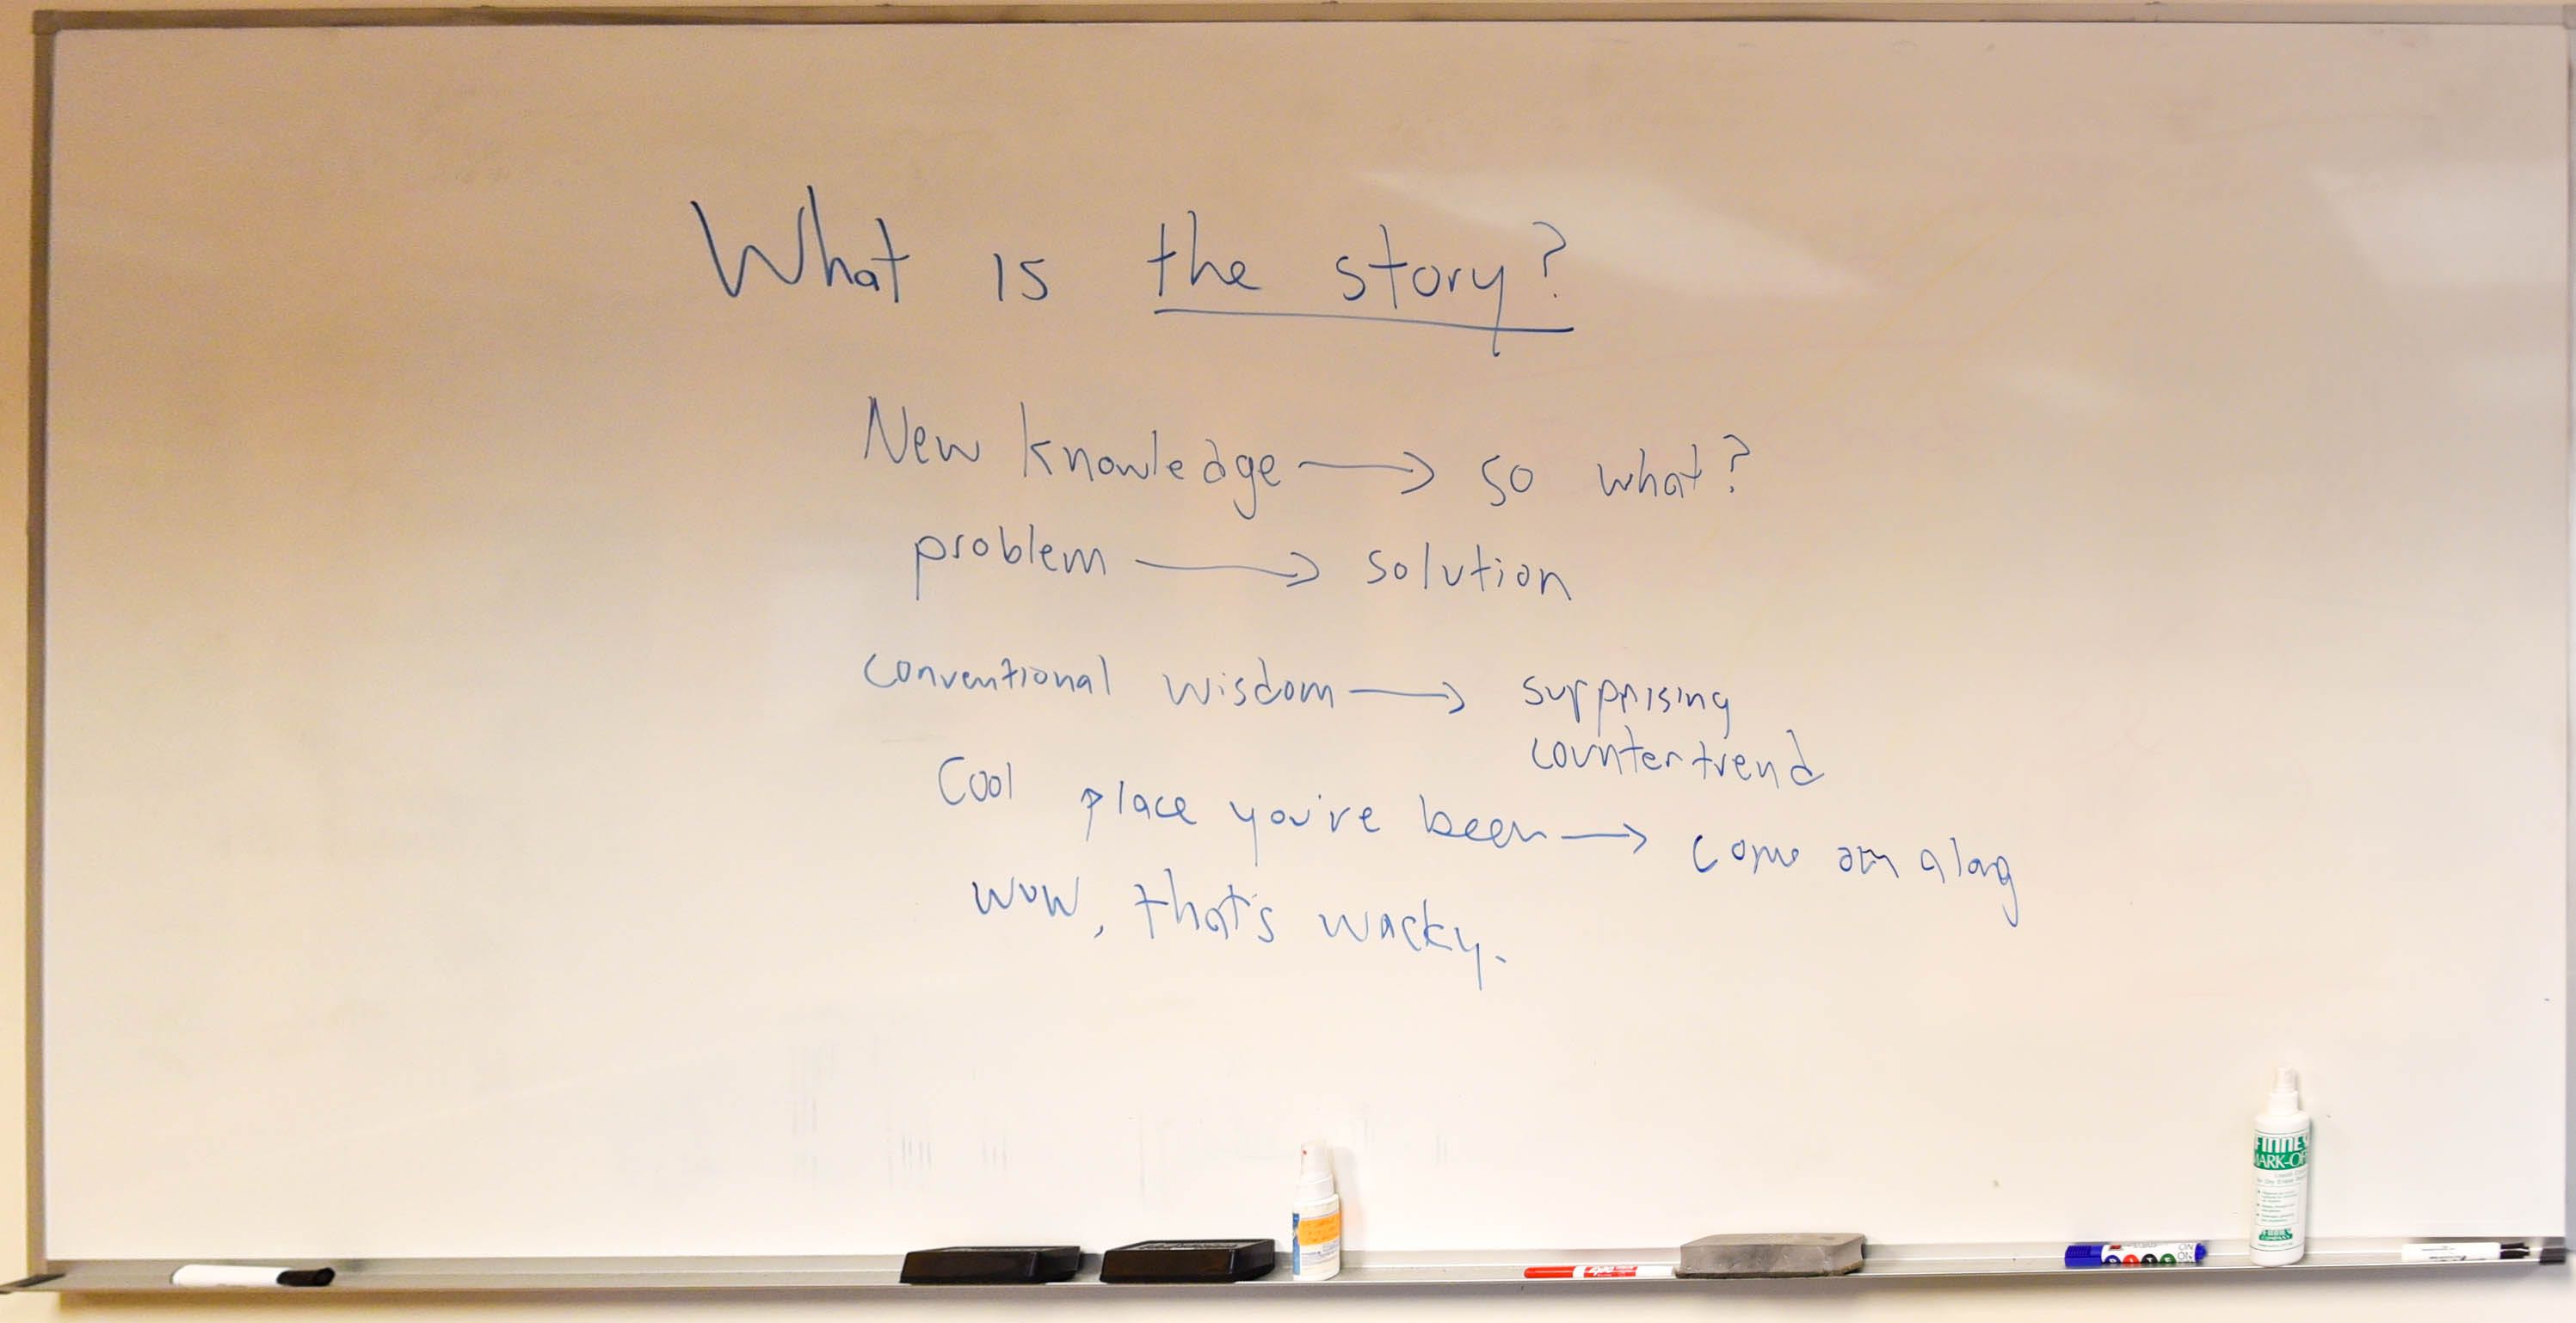 What is the story?
New knowledge → so what?
problem → solution
conventional wisdom → surprising
countertrend
Cool place you've been → come on along
wow, that's wacky.
EXPO
FINNEY
MARK-OFF